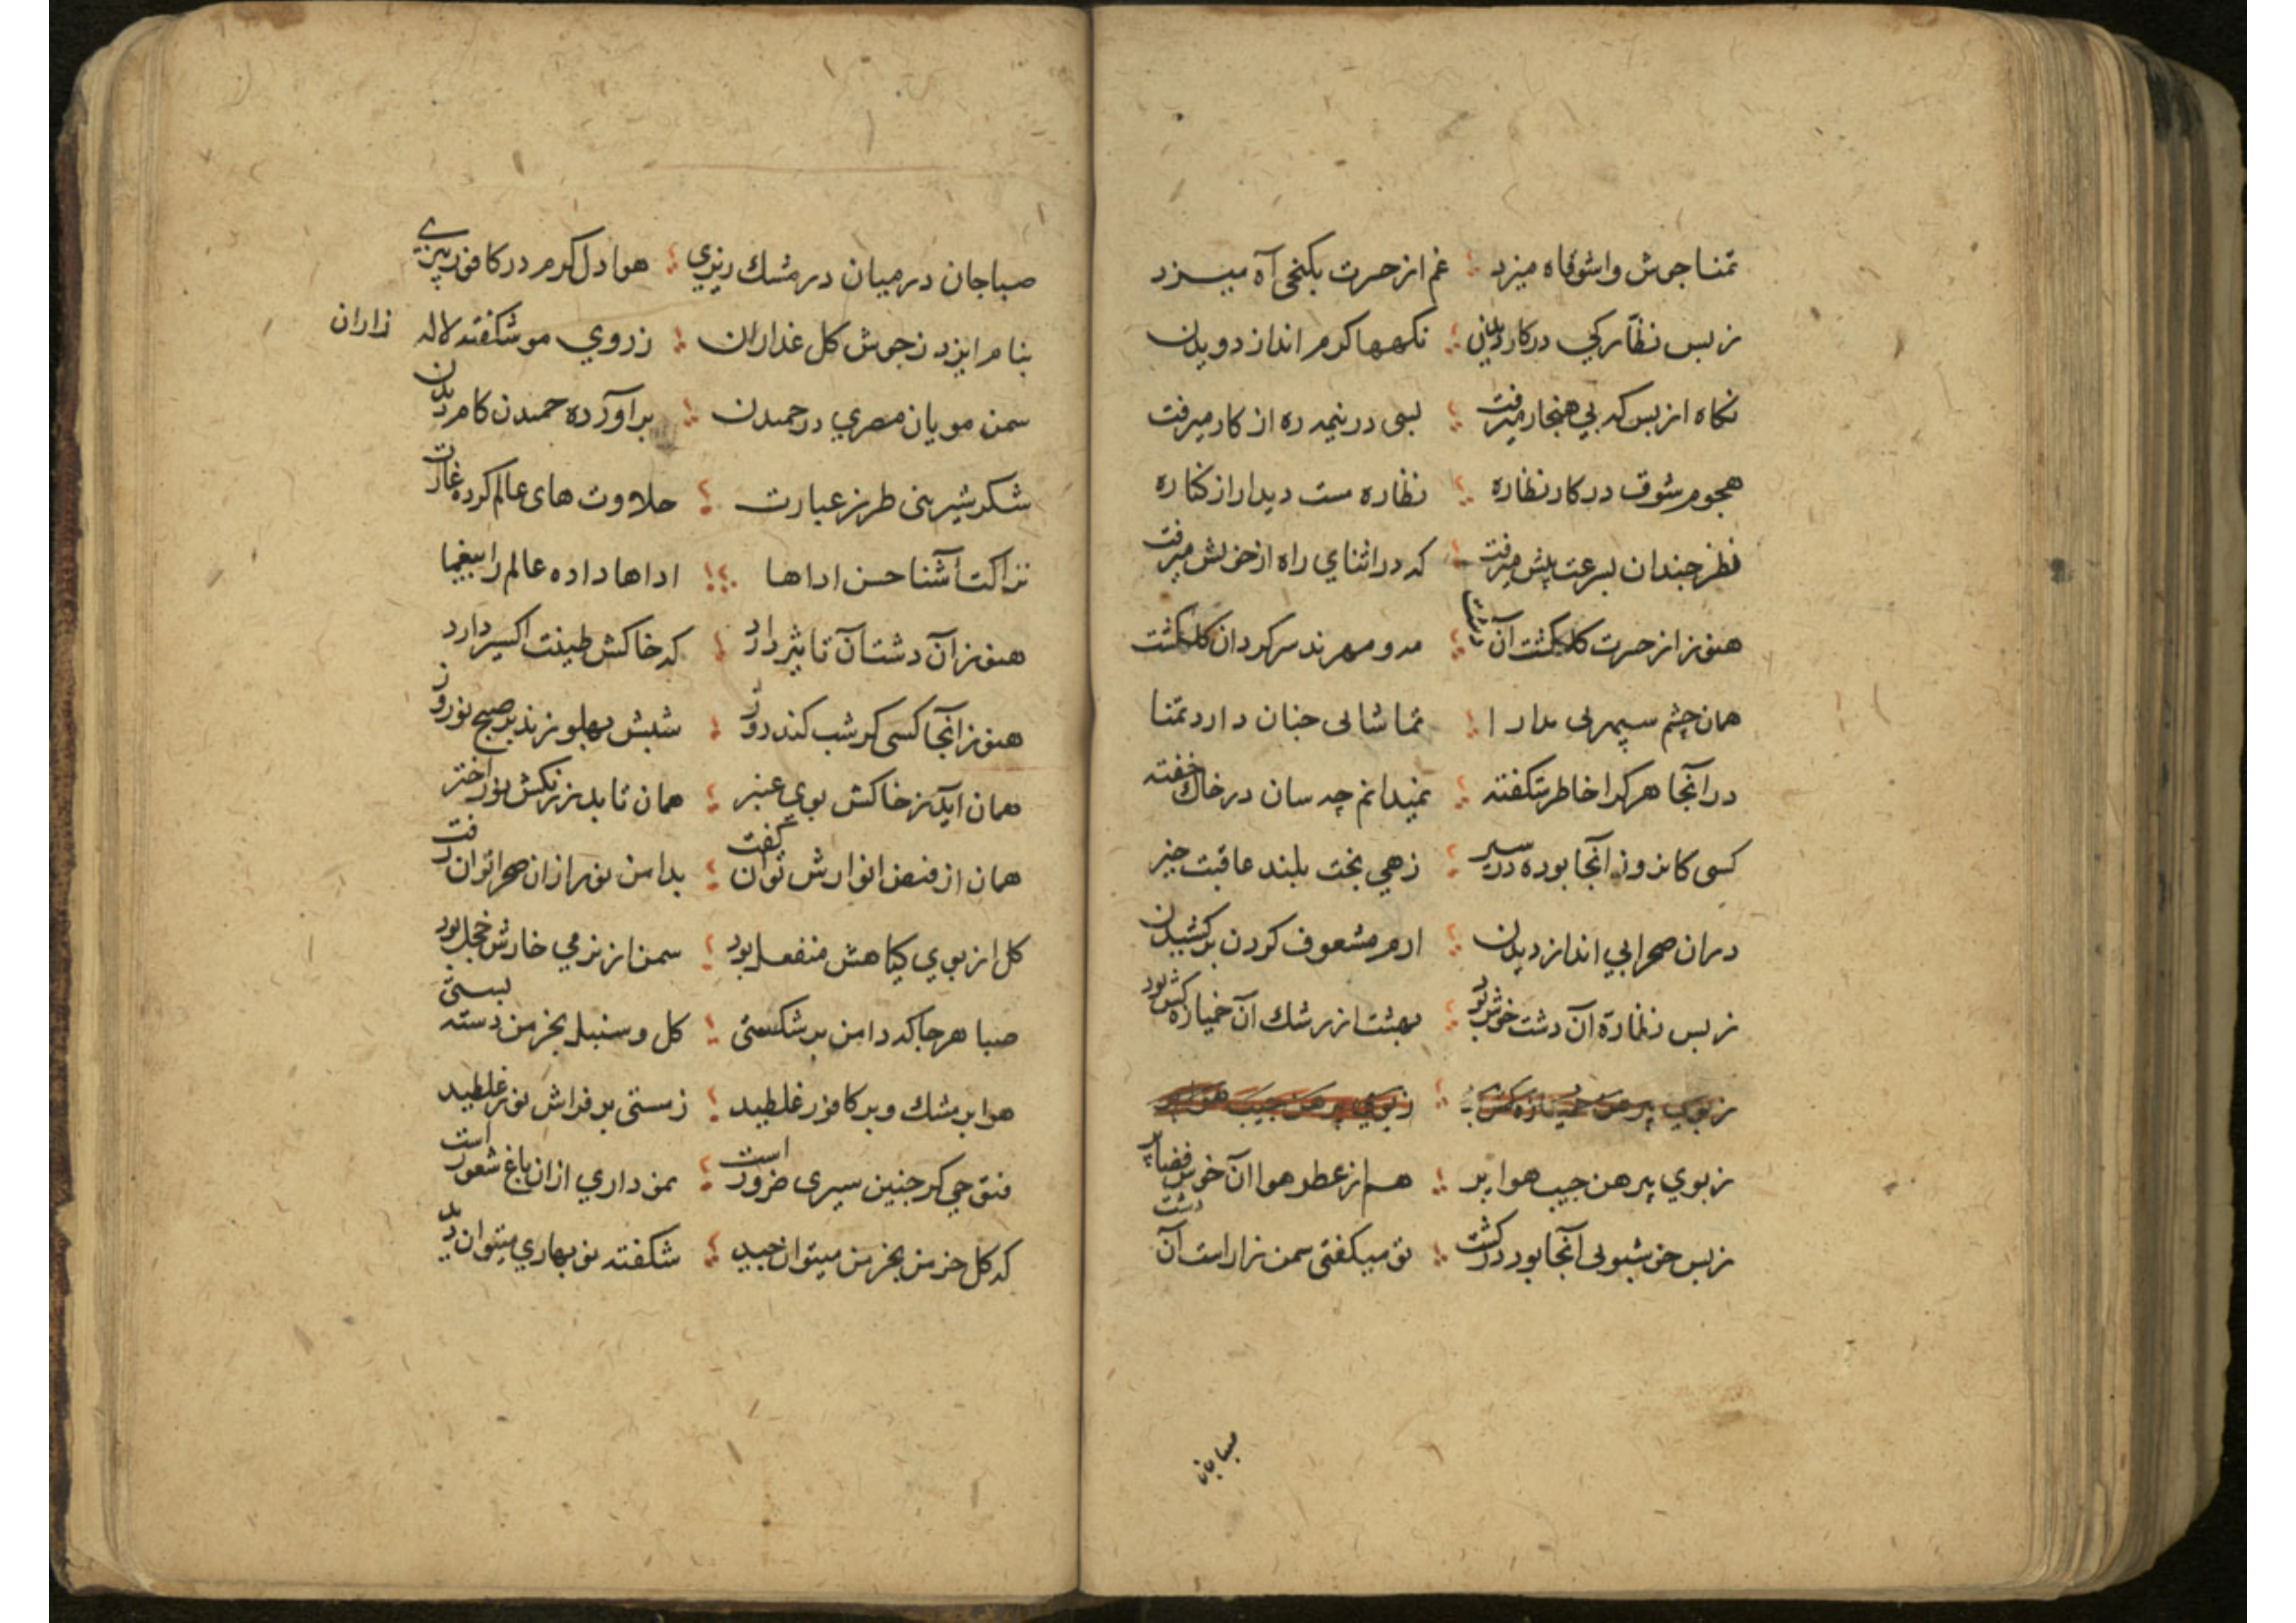 تمنا جوش واشوقاه میزد غم از حسرت بکنجی آه میزد
ز بس نظارکی در کار دیدن نکهها کرم انداز دویدن
نکاه از بس که بی هنجار میرفت بسی در نیمه ره از کار میرفت
هجوم شوق در کار نظاره نظاره مست دیدار از کناره
نظر چندان بسرعت پیش میرفت که در اثنای راه از خویش میرفت
هنوز از حسرت کلکشت آن دشت مه و مهرند سرکردان کلکشت
همان چشم سپهر بی مدارا تماشایی چنان دارد تمنا
در آنجا هر کرا خاطر شکفته نمیدانم چه سان در خاک خفته
کسی کامروز آنجا بوده در سیر زهی بخت بلند عاقبت خیر
دران صحرا بی انداز دیدن ارم مشعوف کردن برکشیدن
ز بس نظارهٔ آن دشت خوش بود بهشت از رشک آن خمیازه کش بود
ز بوی پیرهن خمیازه کش ز بوی پیرهن جیب هوا پر
ز بوی پیرهن جیب هوا پر هم از عطر هوا آن خوش فضا پر
ز بس خوشبویی آنجا بود در کشت تو میکفتی سمن زار است آن دشت
صبا جان
صبا جان در میان در مشک ریزی هوا دل کرم در کافور بیزی
بنام ایزد ز جوش کل عذاران ز روی مو شکفته لاله زاران
سمن مویان مصری در چمیدن برآورده چمیدن کام دیدن
شکر شیرینی طرز عبارت حلاوت های عالم کرده غارت
نزاکت آشنا حسن اداها اداها داده عالم را بیغما
هنوز آن دشت آن تاثیر دارد که خاکش طینت اکسیر دارد
هنوز آنجا کسی کر شب کند روز شبش پهلو زند بر صبح نوروز
همان آید ز خاکش بوی عنبر همان تابد ز ریکش نور اختر
همان از فیض انوارش توان کفت بدامن نور ازان صحرا توان رفت
کل از بوی کیاهش منفعل بود سمن از نرمی خارش خجل بود
صبا هر جا که دامن بر شکستی کل و سنبل بخرمن دسته بستی
هوا بر مشک و بر کافور غلطید ز مستی بر فراش نور غلطید
فتوحی کر چنین سیری ضرور است من داری ازان باغ شعور است
که کل خرمن بخرمن میتوان چید شکفته نوبهاری میتوان دید